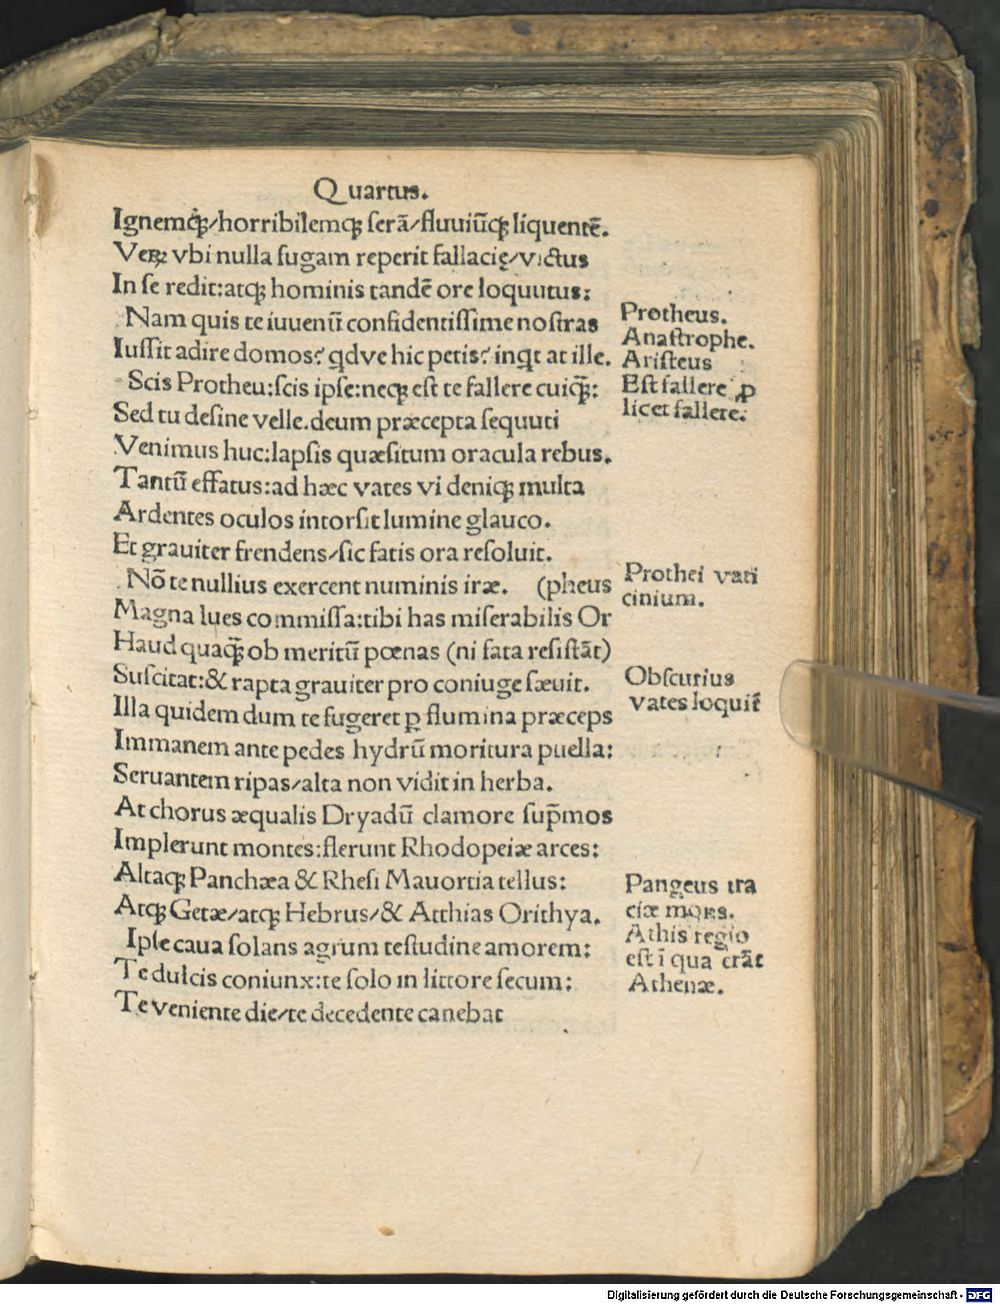 Quartus.
Ignemq̃;/horribilemq; ferā/fluuiūq; liquentē.
Veꝝ vbi nulla fugam reperit fallacię/victus
In se redit:atq; hominis tandē ore loquutus:
Nam quis te iuuenū confidentissime nostras
Iussit adire domos? qdve hic petis? inqt at ille.
Scis Protheu:scis ipse:neq; est te fallere cuiq̃;:
Sed tu desine velle.deum præcepta sequuti
Venimus huc:lapsis quæsitum oracula rebus.
Tantū effatus:ad hæc vates vi deniq; multa
Ardentes oculos intorsit lumine glauco.
Et grauiter frendens/sic fatis ora resoluit.
Nō te nullius exercent numinis iræ. (pheus
Magna lues commissa:tibi has miserabilis Or
Haud quaq̃; ob meritū pœnas (ni fata resistāt)
Suscitat:& rapta grauiter pro coniuge sæuit.
Illa quidem dum te fugeret ꝑ flumina præceps
Immanem ante pedes hydrū moritura puella:
Seruantem ripas/alta non vidit in herba.
At chorus æqualis Dryadū clamore sup̄mos
Implerunt montes:flerunt Rhodopeiæ arces:
Altaq; Panchæa & Rhesi Mauortia tellus:
Atq; Getæ/atq; Hebrus/& Atthias Orithya.
Ipse caua solans ągrum testudine amorem:
Te dulcis coniunx:te solo in littore secum:
Te veniente die/te decedente canebat
Protheus.
Anastrophe.
Aristeus
Est fallere ꝓ
licet fallere.
Prothei vati
cinium.
Obscurius
vates loquit᷑
Pangeus tra
ciæ mons.
Athis regio
est ī qua erāt
Athenæ.
Digitalisierung gefördert durch die Deutsche Forschungsgemeinschaft - DFG